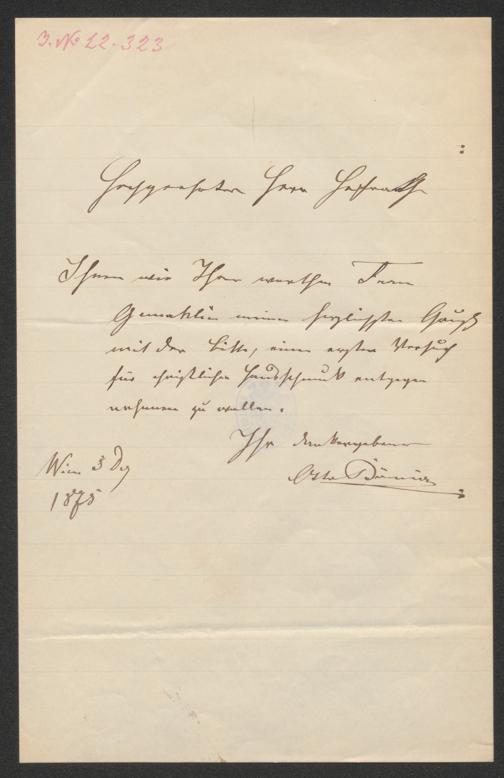 J. No 22.323
Hochgeehrter Herr Hofrath
Ihnen wie Ihrer werthen Frau
Gemahlin meinen herzlichsten Gruß
mit der Bitte, einen ersten Versuch
für christlichen Hausschmuck entgegen
nehmen zu wollen.
Ihr dankergebener
Otto
Wien 3 Dez
1875